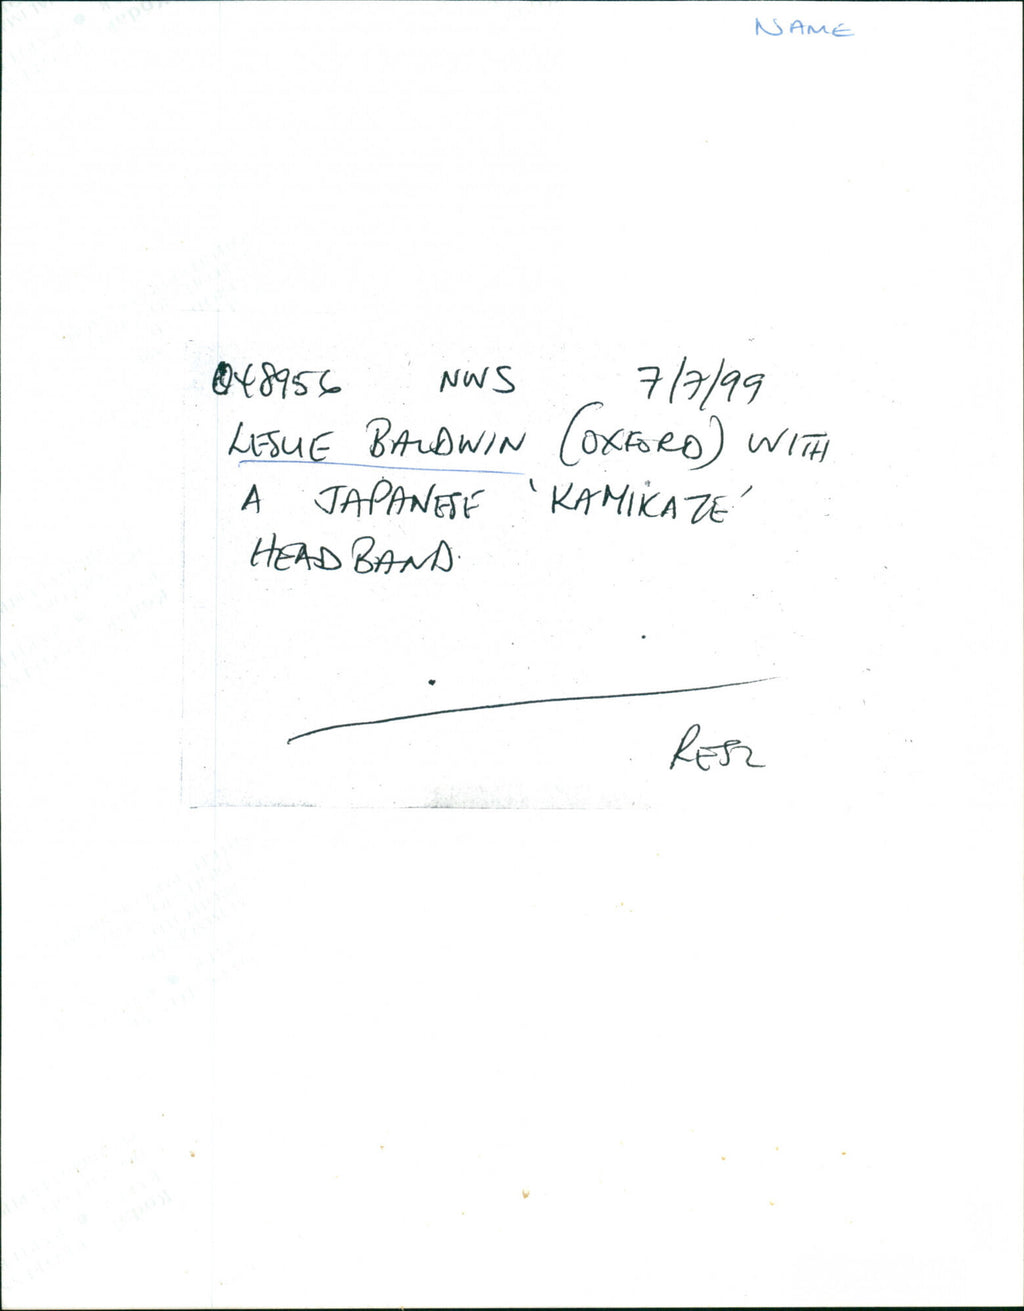 NAME
048956 NWS 7/7/99
LESLIE BALDWIN (OXFORD) WITH
A JAPANESE 'KAMIKAZE'
HEADBAND.